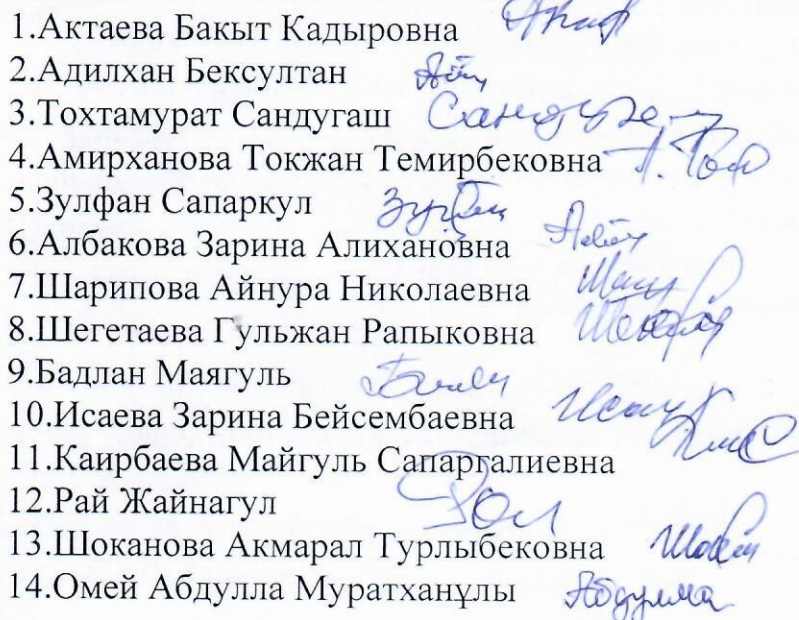 1.Актаева Бакыт Кадыровна
2.Адилхан Бексултан
3.Тохтамурат Сандугаш Сандуга
4.Амирханова Токжан Темирбековна
5.Зулфан Сапаркул
6.Албакова Зарина Алихановна
7.Шарипова Айнура Николаевна
8.Шегетаева Гульжан Рапыковна
9.Бадлан Маягуль
10.Исаева Зарина Бейсембаевна
11.Каирбаева Майгуль Сапаргалиевна
12.Рай Жайнагул
13.Шоканова Акмарал Турлыбековна
14.Омей Абдулла Муратханұлы Абдулла